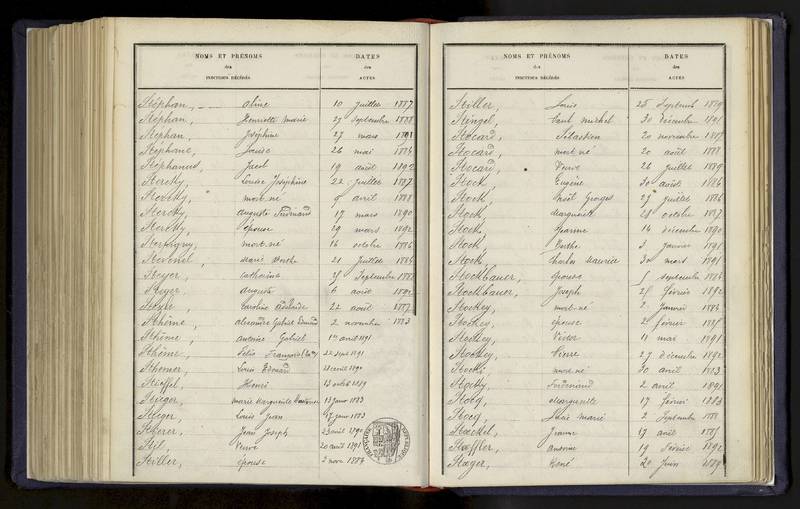 NOMS ET PRÉNOMS
des
INDIVIDUS DÉCÉDÉS
DATES
des
ACTES
Stéphan, Aline 10 Juillet 1887
Stéphan, Henriette Marie 27 Septembre 1888
Stéphan, Joséphine 27 mars 1891
Stéphane, Louise 26 mai 1884
Stéphanus, Jacob 19 août 1892
Louise Joséphine 22 Juillet 1887
mort-né 9 avril 1888
Auguste Ferdinand 17 mars 1890
épouse 29 mars 1892
mort-né 16 octobre 1884
Stévenel, Marie Berthe 21 Juillet 1884
Steyer, Catherine Septembre 1888
Steyer, Auguste 6 août 1892
Caroline Adélaïde 22 août 1887
Sthème, Alexandre Gabriel Edmond 2 novembre 1883
Sthème, Antoine Gabriel 1er avril 1891
Sthème, 22 sept 1891
Louis Edouard avril 1890
Stieffel, Henri 13 octob 1889
Stieger, Marie Marguerite 13 Janv 1883
Stieger, Louis Jean 17 Janv 1883
Jean Joseph 23 août 1890
Stil, Veuve 20 août 1891
Stiller, épouse 3 nove 1884
NOMS ET PRÉNOMS
des
INDIVIDUS DÉCÉDÉS
DATES
des
ACTES
Stiller, Louis 25 Septemb 1889
Stingel, Paul Michel 30 décembre 1891
Stocard, Sébastien 20 novembre 1887
Stocard, mort-né 20 août 1888
Stocard, Veuve 26 Juillet 1889
Stock, Eugène 30 août 1886
Stock, Noël Georges 27 Juillet 1886
Stock, Marguerite 28 octobre 1887
Stock, Jeanne 14 décembre 1890
Stock, Berthe 3 Janvier 1891
Stock, Charles Maurice 30 mars 1891
Stockbauer, épouse septembre 1884
Stockbauer, Joseph Février 1892
Stockey, mort-né 2 Janvier 1884
Stockey, épouse 2 février
Stockey, Victor 11 mai 1891
Stockey, Pierre 27 décembre 1892
Stocki, mort-né 30 avril 1883
Ferdinand 2 avril 1891
Stocq, Marguerite 17 février 1883
Stocq, Marie 2 Septembre 1888
Stoeckel, Jeanne 17 août
Stoeffler, Antoine 19 Février 1892
Stoeger, René 20 Juin 1889